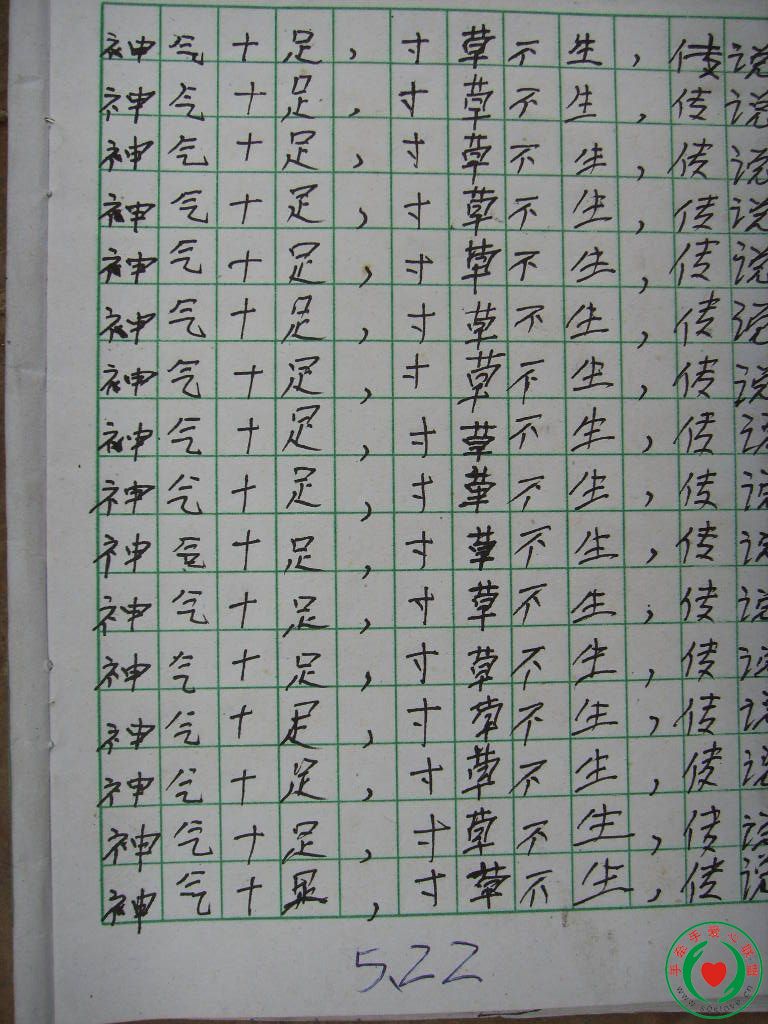 神气十足，寸草不生，传说
神气十足，寸草不生，传说
神气十足，寸草不生，传说
神气十足，寸草不生，传说
神气十足，寸草不生，传说
神气十足，寸草不生，传说
神气十足，寸草不生，传说
神气十足，寸草不生，传说
神气十足，寸草不生，传说
神气十足，寸草不生，传说
神气十足，寸草不生，传说
神气十足，寸草不生，传说
神气十足，寸草不生，传说
神气十足，寸草不生，传说
神气十足，寸草不生，传说
神气十足，寸草不生，传说
5.22
手牵手爱心联盟